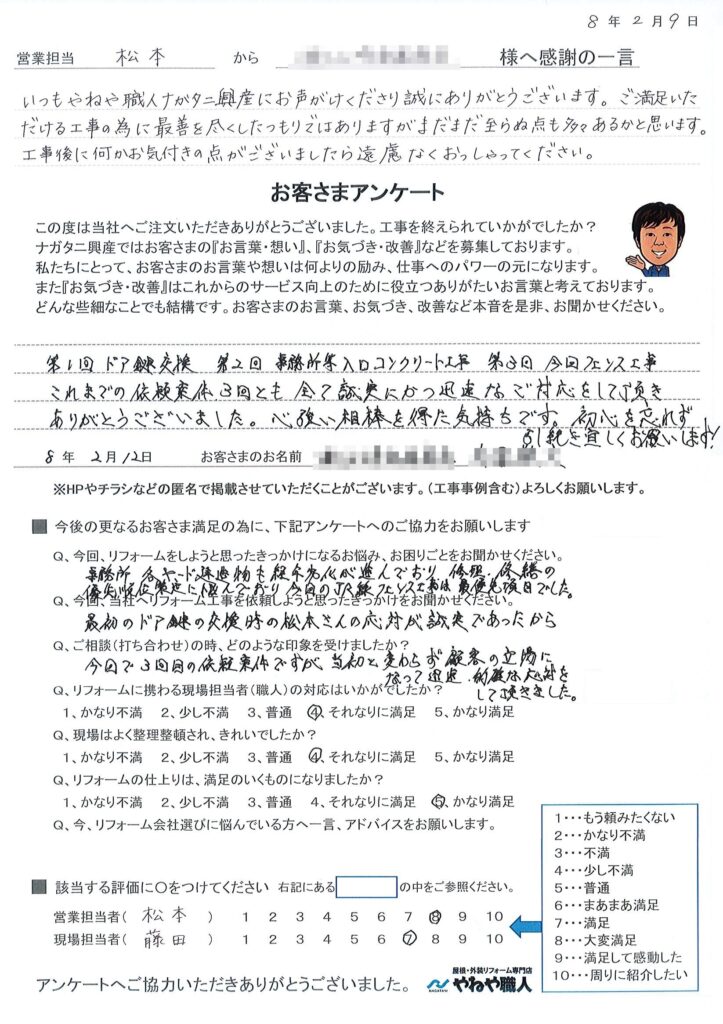 8 年 2 月 9 日
営業担当 松本 から 様へ感謝の一言
いつもやねや職人ナガタニ興産にお声がけくださり誠にありがとうございます。ご満足いた
だける工事の為に最善を尽くしたつもりではありますがまだまだ至らぬ点も多々あるかと思います。
工事後に何かお気付きの点がございましたら遠慮なくおっしゃってください。
お客さまアンケート
この度は当社へご注文いただきありがとうございました。工事を終えられていかがでしたか？
ナガタニ興産ではお客さまの『お言葉・想い』、『お気づき・改善』などを募集しております。
私たちにとって、お客さまのお言葉や想いは何よりの励み、仕事へのパワーの元になります。
また『お気づき・改善』はこれからのサービス向上のために役立つありがたいお言葉と考えております。
どんな些細なことでも結構です。お客さまのお言葉、お気づき、改善など本音を是非、お聞かせください。
第1回 ドア鍵交換 第2回 事務所等入口コンクリート工事 第3回 今回フェンス工事
これまでの依頼案件3回とも 全て誠実にかつ迅速なご対応をして頂き
ありがとうございました。心強い相棒を得た気持ちです。初心を忘れず
引続き宜しくお願いします！
8 年 2 月 12 日 お客さまのお名前
※HPやチラシなどの匿名で掲載させていただくことがございます。（工事事例含む）よろしくお願いします。
■ 今後の更なるお客さま満足の為に、下記アンケートへのご協力をお願いします
Q、今回、リフォームをしようと思ったきっかけになるお悩み、お困りごとをお聞かせください。
事務所 各ヤード建造物も経年劣化が進んでおり 修理・修繕の
優先順位策定に悩んでおり 今回のJR線フェンス工事は最優先項目でした。
Q、今回、当社へリフォーム工事を依頼しようと思ったきっかけをお聞かせください。
最初のドア鍵の交換時の松本さんの応対が誠実であったから
Q、ご相談（打ち合わせ）の時、どのような印象を受けましたか？
今回で3回目の依頼案件ですが、当初と変わらず顧客の立場に
なって迅速、的確な応対を
して頂きました。
Q、リフォームに携わる現場担当者（職人）の対応はいかがでしたか？
1、かなり不満 2、少し不満 3、普通 4、それなりに満足 5、かなり満足
Q、現場はよく整理整頓され、きれいでしたか？
1、かなり不満 2、少し不満 3、普通 4、それなりに満足 5、かなり満足
Q、リフォームの仕上りは、満足のいくものになりましたか？
1、かなり不満 2、少し不満 3、普通 4、それなりに満足 5、かなり満足
Q、今、リフォーム会社選びに悩んでいる方へ一言、アドバイスをお願いします。
■ 該当する評価に〇をつけてください 右記にある の中をご参照ください。
営業担当者（ 松本 ） 1 2 3 4 5 6 7 8 9 10
現場担当者（ 藤田 ） 1 2 3 4 5 6 7 8 9 10
1・・・もう頼みたくない
2・・・かなり不満
3・・・不満
4・・・少し不満
5・・・普通
6・・・まあまあ満足
7・・・満足
8・・・大変満足
9・・・満足して感動した
10・・・周りに紹介したい
アンケートへご協力いただきありがとうございました。
NAGATANI
屋根・外装リフォーム専門店
やねや職人